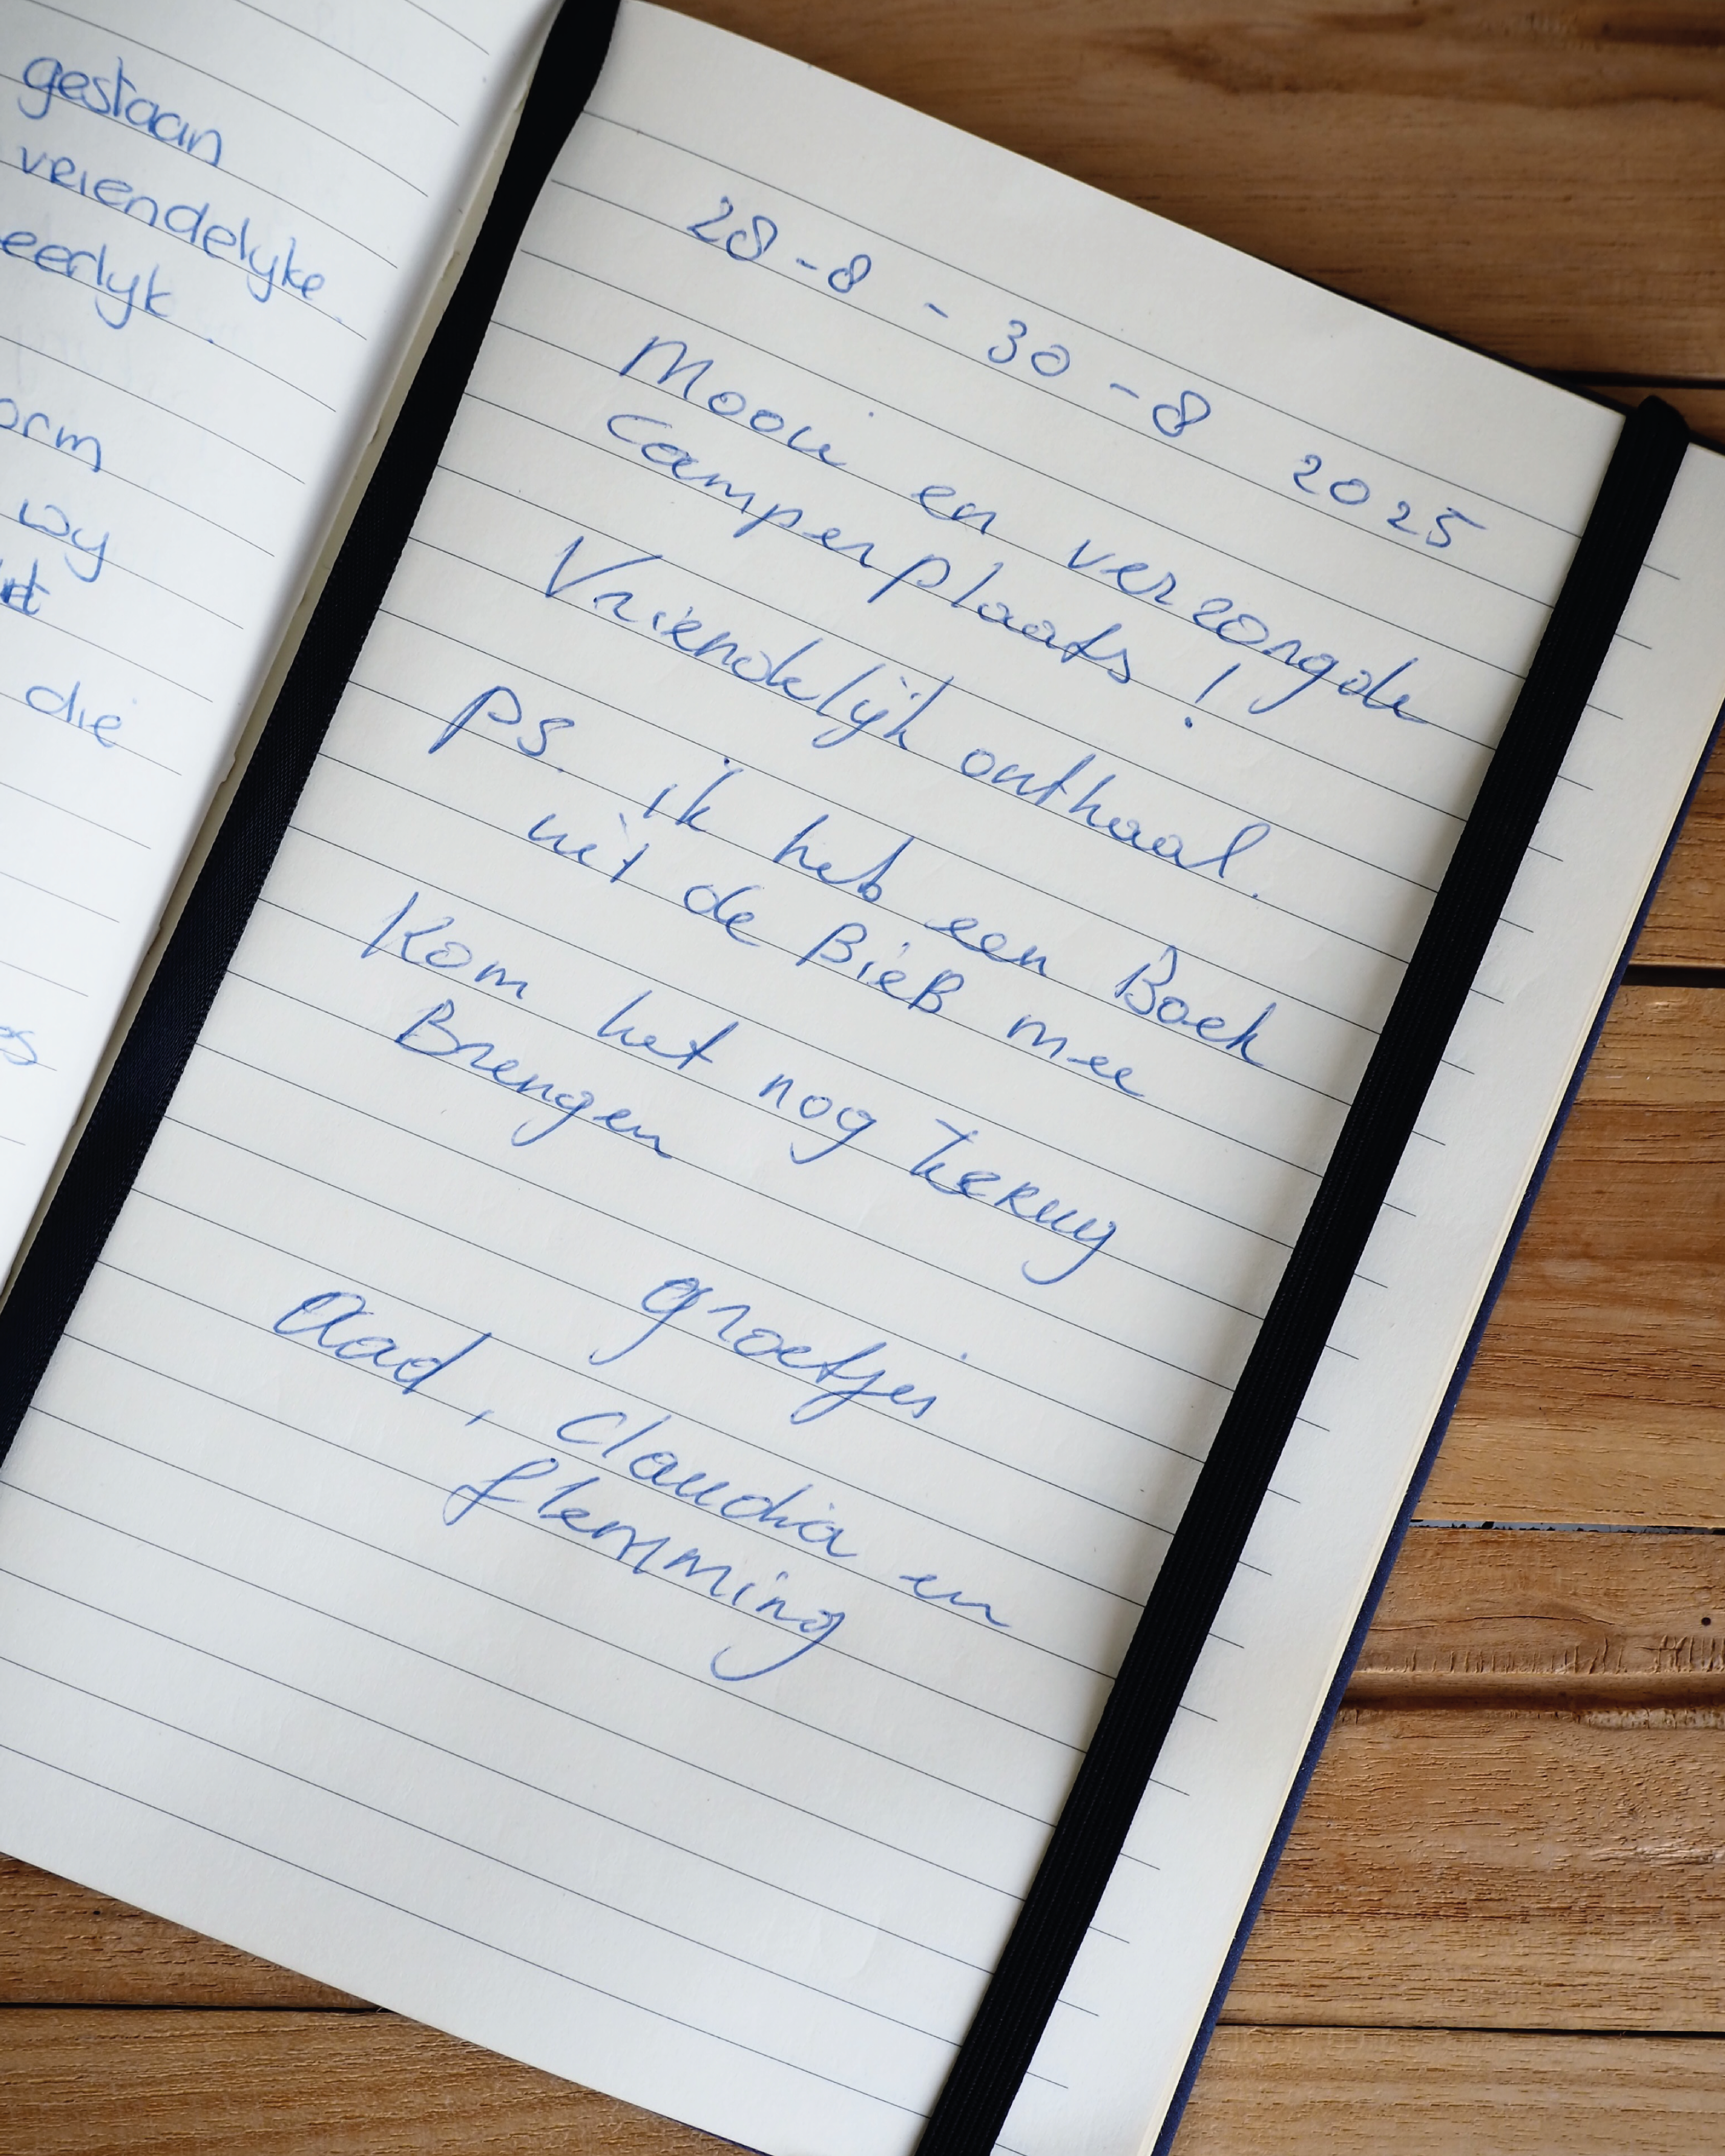 gestaan
vriendelyke
eerlyk.
orm
wy
die
es
28-8 - 30-8 2025
Mooie en verzorgde
camperplaats!
Vriendelijk onthaal.
ps. ik heb een Boek
uit de BieB mee
Kom het nog terug
Brengen
groetjes
Aad, Claudia en
flemming